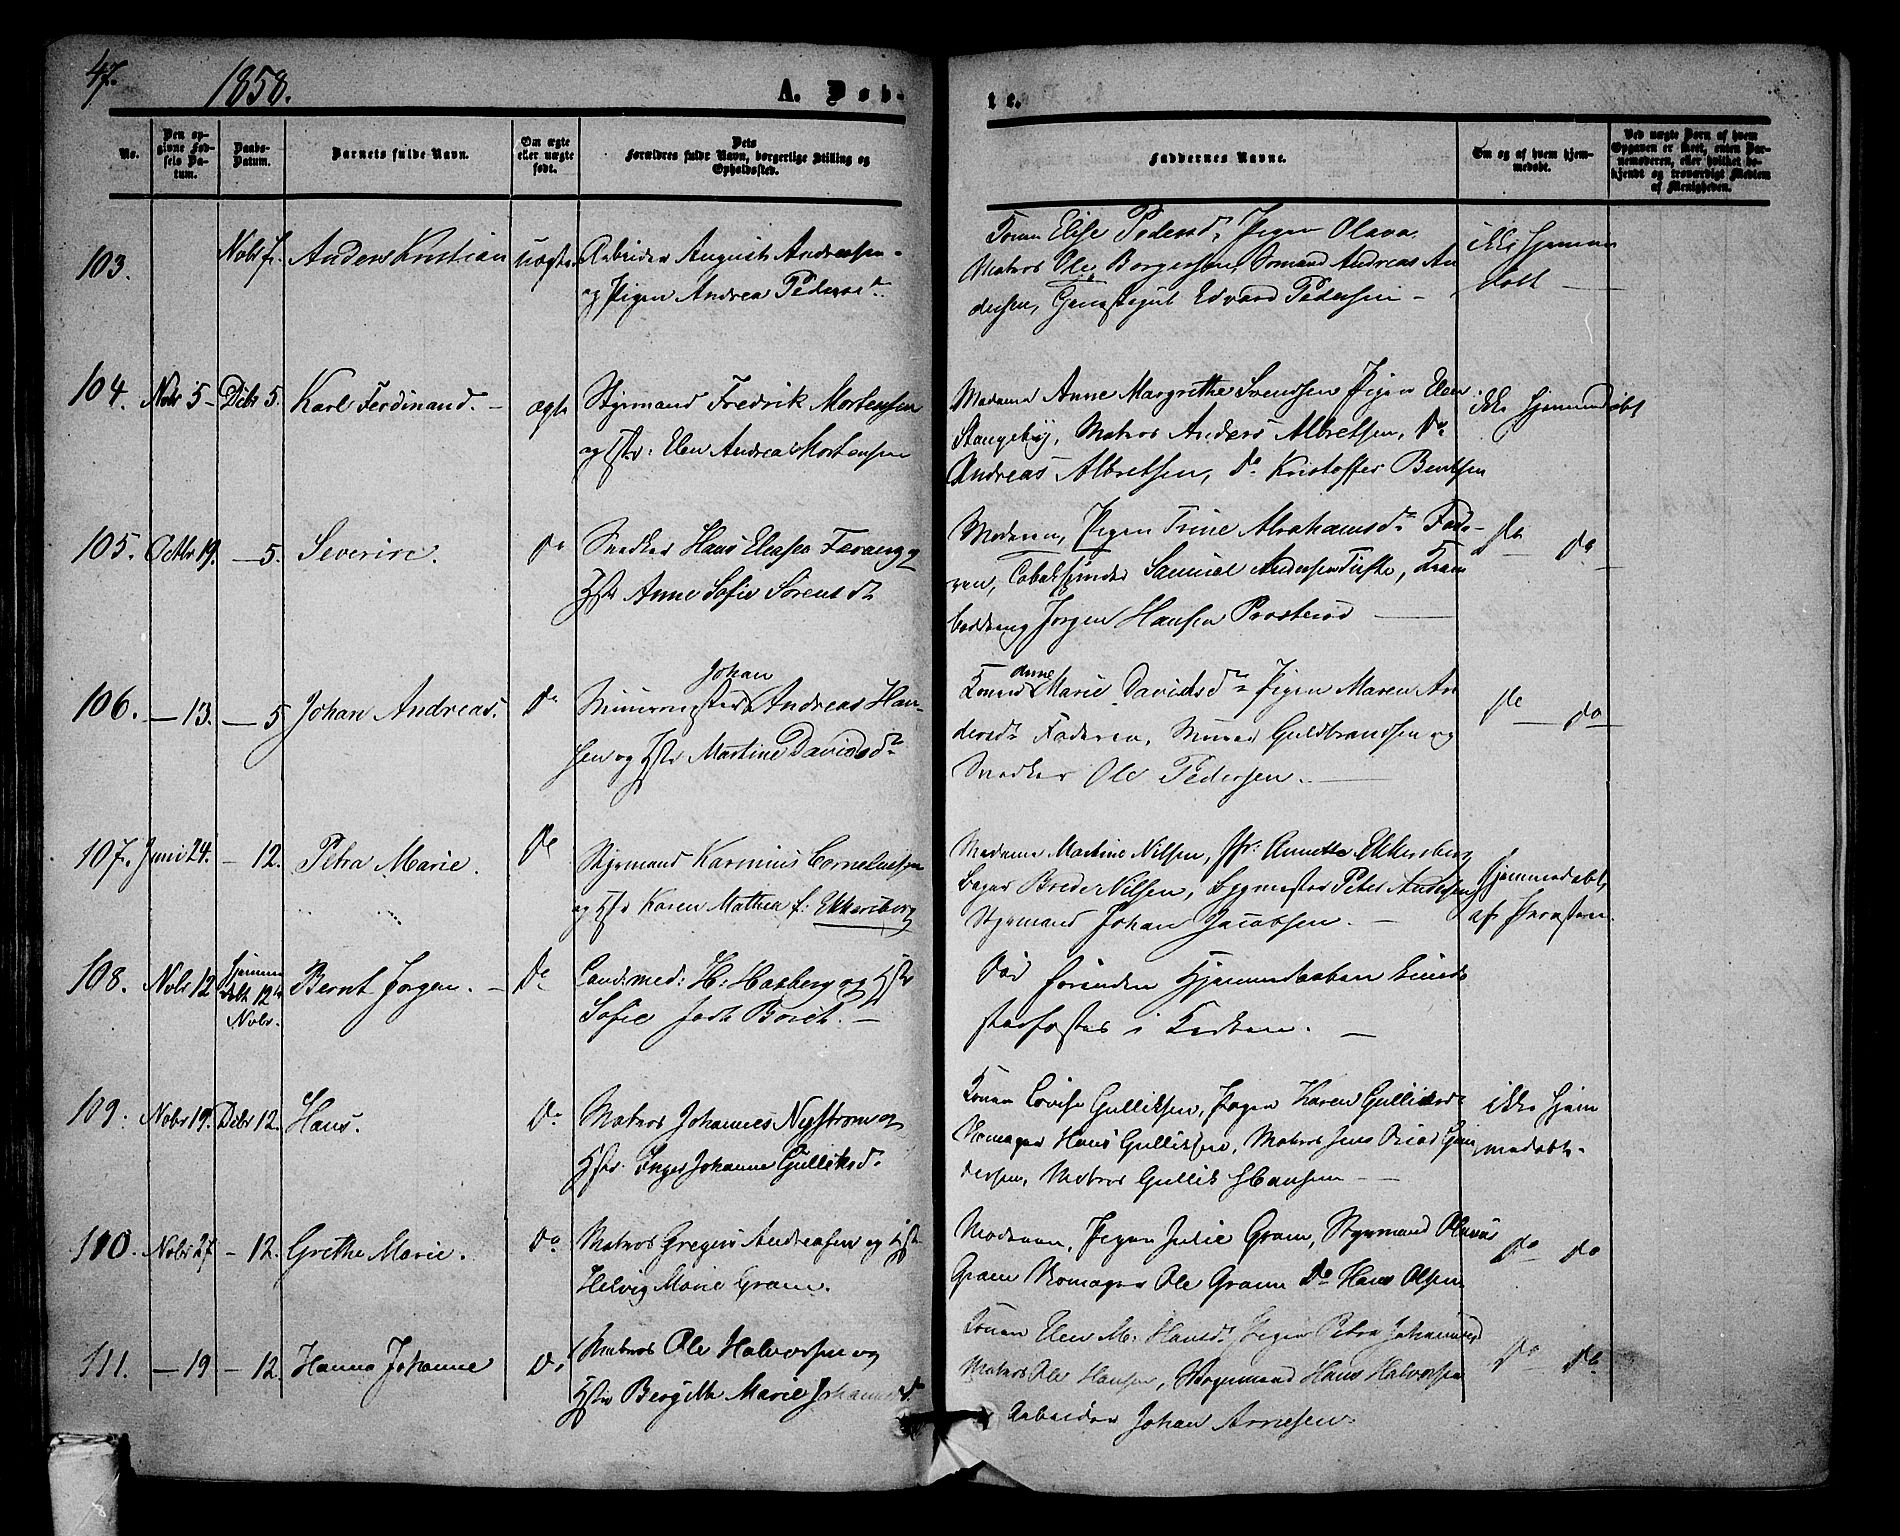 47.
1858.
A. Døb-
te.
No.
Den opgivne Fødsels Datum.
Daabs-Datum.
Barnets fulde Navn.
Om ægte eller uægte født.
Dets Forældres fulde Navn, borgerlige Stilling og Opholdssted.
Faddernes Navne.
Om og af hvem hjemmedøbt.
Ved uægte Børn af hvem Opgaven er skeet, enten Barnemoderen, eller hvilket bekjendt og troværdigt Medlem af Menigheden.
103.
Anders Kristian
uægte
Arbeider August Andreasen
og Pigen Andrea Pedersd.
Konen Elise Pedersd. Pigen Olava
Matros Ole Borgersen, Sømand Andreas An
dersen, Edvard Pedersen
ikke hjemme
døbt
104.
Nobr 5
Debr 5.
Karl Ferdinand.
ægte
Styrmand Fredrik Mortensen
og Hstr: Elen Andrea Mortensen
Madame Anne Margrethe Svendsen Pigen Elen
Stangeby, Matros Anders Albretsen, Do
Andreas Albretsen, Do Kristoffer Bentsen
ikke hjemmedøbt
105.
Octbr 19.
5.
Severin.
Do
Snedker Hans
Hstr Anne Sofie Sørensd.
Moderen, Pigen Trine Abrahamsd. Fade-
ren, Samuel Andersen
Jørgen Hansen
Do Do
106.
13.
5
Johan Andreas.
Do
Muurmester Johan Andreas Han-
sen og Hstr Martine Davidsd.
Konen Anne Marie Davidsd. Pigen Maren An
dersd. Faderen, Murer Guldbrandsen og
Snedker Ole Pedersen.
Do Do
107.
Juni 24.
12.
Petra Marie.
Do
Styrmand Karinius Corneliussen
og Hstr Karen Mathea f: Ekkersberg
Madame Martine Nilsen, Jfr: Annette Ekkersberg
Bager Breder Nilsen, Bygmester Peter Andersen
Styrmand Johan Jacobsen.
Hjemmedøbt
af Præsten.
108.
Nobr 12
Hjemme
døbt 12te
Nobr.
Bernt Jørgen.
Do
Landsmed: H: Haxberg og Hstr
Sofie
Død forinden Hjemmedaaben blev
stadfæstet i Kirken.
109.
Nobr 19.
Debr 12.
Hans.
Do
Matros Johannes Nystrøm og
Hstr. Inger Johanne Gulliksd.
Konen Lovise Gulliksen, Pigen Karen Gulliksd.
Skomager Hans Gulliksen, Matros Jens
dersen, Matros Gullik Hansen
ikke hjem
medøbt.
110.
Nobr 27.
12.
Grethe Marie.
Do
Matros Gregers Andreasen og Hstr
Helvig Marie Gram.
Moderen, Pigen Julie Gram, Styrmand Olavus
Gram Skomager Ole Gram Do Hans Olsen
Do Do
111.
19
12.
Hanna Johanne
Do
Matros Ole Halvorsen og
Hstr Bergitte Marie Johannesd.
Konen Elen M: Hansd. Pigen Petra Johannesd
Matros Ole Hansen, Styrmand Hans Halvorsen
Arbeider Johan Arnesen.
Do Do